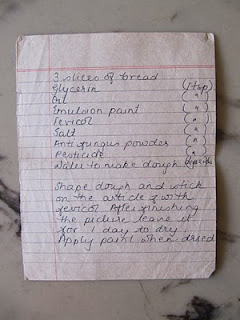 3 slices of bread
Glycerin (1 tsp)
Oil (")
Emulsion paint (")
Fevicol (")
Salt (")
Anti fungus powder (")
Pesticide (")
Water to make dough
Shape dough and stick
on the article with
fevicol. After finishing
the picture leave it
for 1 day to dry.
Apply paint when dried